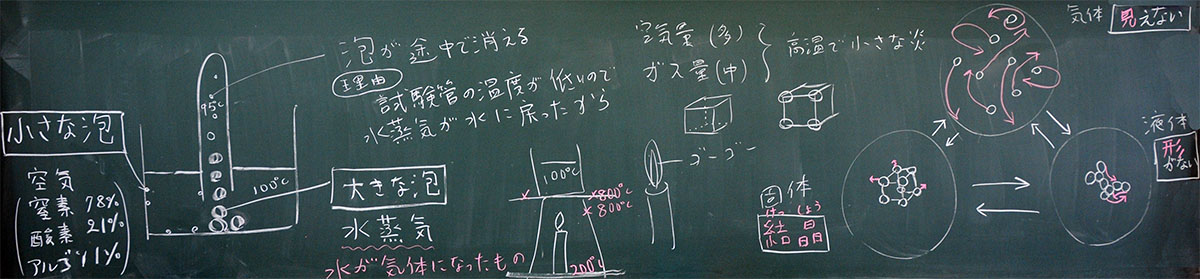 小さな泡
空気
窒素 78%
酸素 21%
アルゴン 1%
95℃
100℃
泡が途中で消える
理由
試験管の温度が低いので
水蒸気が水に戻ったから
大きな泡
水蒸気
水が気体になったもの
100℃
800℃
800℃
200℃
空気量(多)
ガス量(中)
高温で小さな炎
ゴーゴー
固体
けっしょう
結晶
気体
見えない
液体
形がない